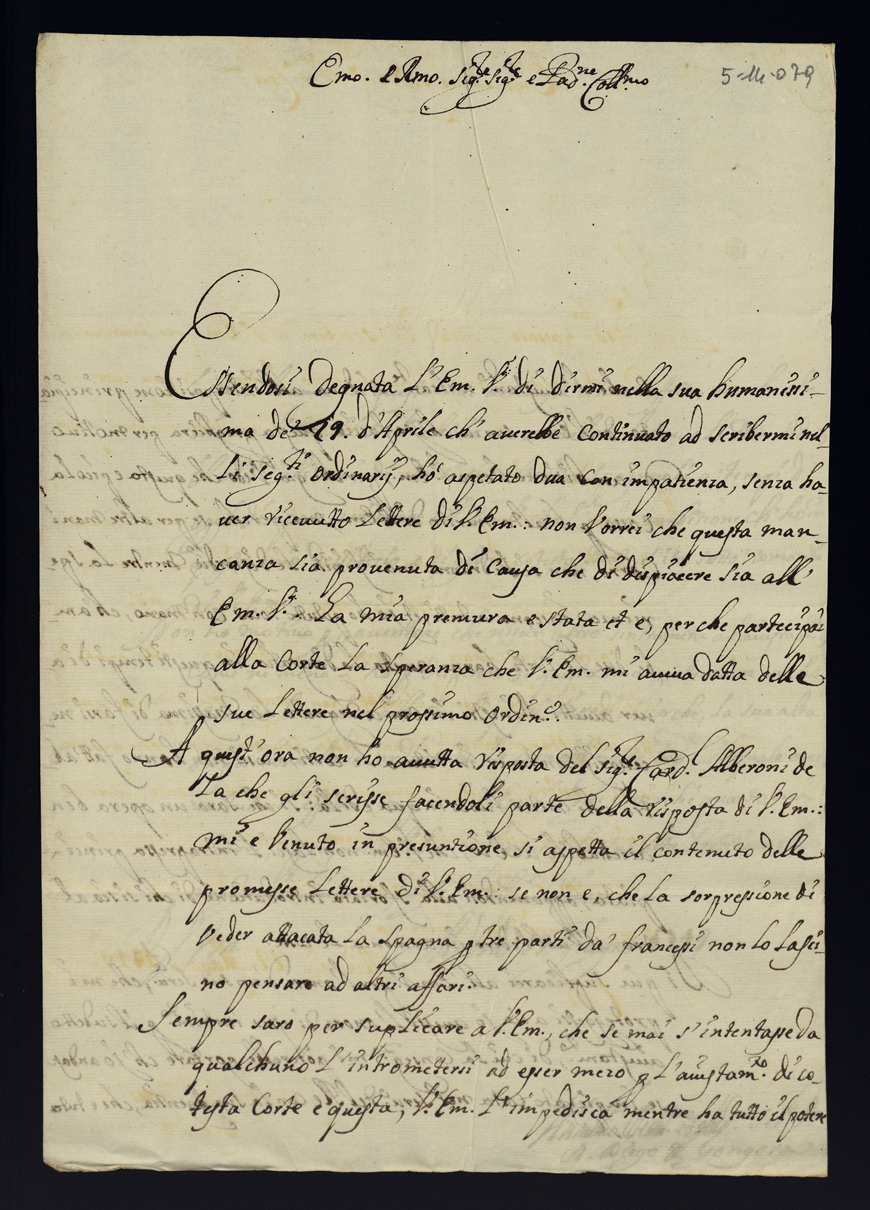 Emo. e Rmo. Sigre. Sigre. e Padne. Collmo
5-M-079
Essendosi Degnata L'Em. Va. di dirmi nella sua humanissi-
ma de 29. d'Aprile ch' averebbe continuato ad scribermi nel-
Li segti. ordinarij, hò aspetato dua con impatienza, senza ha-
ver ricevutto Lettere di V. Em.: non Vorrei che questa man-
canza sia provenuta di Causa che di dispiacere sia all'
Em. Va. La mia premura e stata et e, perche partecipai
alla Corte La speranza che V. Em. mi aveva datta delle
sue Lettere nel prossimo Ordino.
A quest' ora non ho avutta risposta del sigre. Card. Alberoni de
La che gli scrisse facendoli parte della risposta di V. Em.:
mi e Venuto in presuntione si aspetta il contenuto delle
promesse Lettere di V. Em.: se non e, che La sorpressione di
Veder attacata La Spagna p tre parti da' francessi non Lo Lasci-
no pensare ad altri affari.
Sempre saro per suplicare a V. Em., che se mai s'intentasse da
qualchuno L'intrometersi ad esser mezo p L'aiustamto. di co-
testa Corte e questa, V. Em. L'impedisca mentre ha tutto il potere